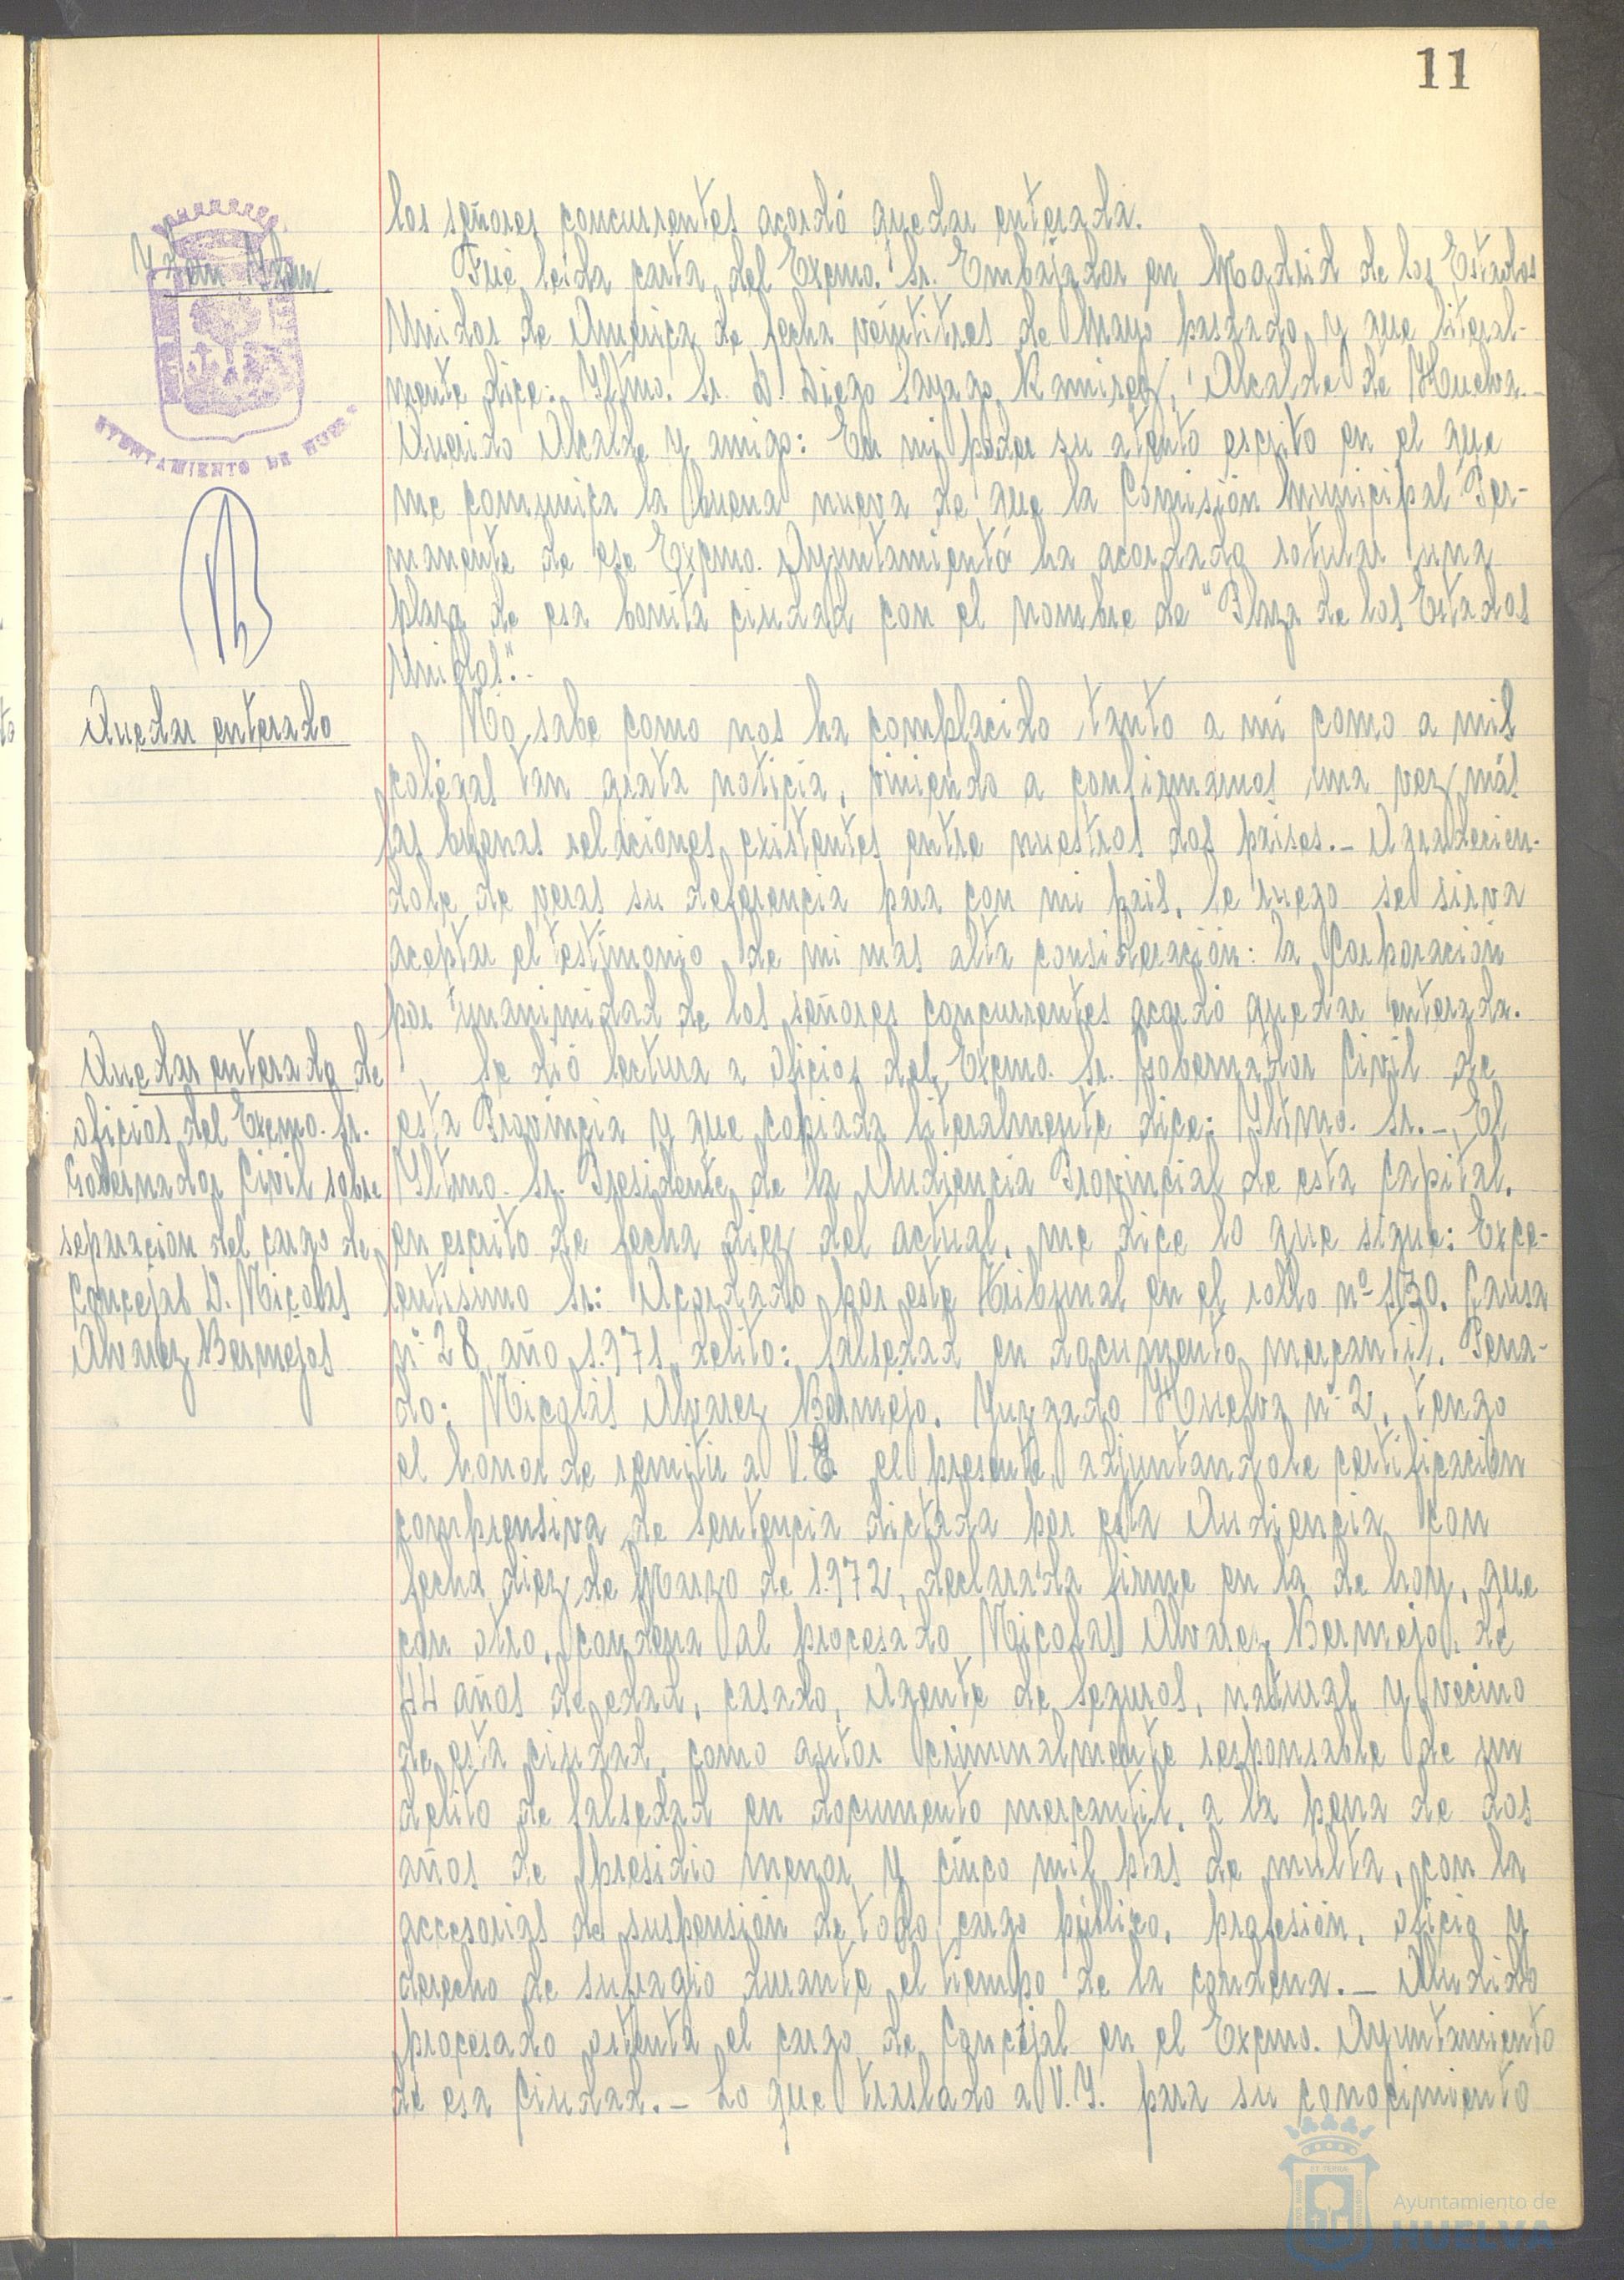 11
los señores concurrentes acordó quedar enterada.
Ydem Ydem
Fué leida carta del Excmo. Sr. Embajador en Madrid de los Estados
Unidos de America de fecha veintitres de Mayo pasado y que literal-
mente dice: Yltmo. Sr. D. Diego Sayago Ramirez, Alcalde de Huelva.-
Querido Alcalde y amigo: En mi poder su atento escrito en el que
AYUNTAMIENTO DE HUELVA
me comunica la buena nueva de que la Comisión Municipal Per-
manente de ese Excmo. Ayuntamiento ha acordado rotular una
plaza de esa bonita ciudad con el nombre de "Plaza de los Estados
Unidos".-
Quedar enterado
No sabe como nos ha complacido tanto a mi como a mis
colegas tan grata noticia, viniendo a confirmarnos una vez más
las buenas relaciones existentes entre nuestros dos paises.- Agradecien-
dole de veras su deferencia para con mi pais, le ruego se sirva
aceptar el testimonio de mi mas alta consideración: la Corporación
por unanimidad de los señores concurrentes acordó quedar enterada.
Quedar enterado de
oficios del Excmo. Sr.
Gobernador Civil sobre
separacion del cargo de
Concejal D. Nicolas
Alvarez Bermejos
Se dió lectura a oficios del Excmo. Sr. Gobernador Civil de
esta Provincia y que copiada literalmente dice: Yltmo. Sr.- El
Yltmo. Sr. Presidente de la Audiencia Provincial de esta Capital,
en escrito de fecha diez del actual, me dice lo que sigue: Exce-
lentisimo Sr: Acordado por este Tribunal en el rollo nº 130. Causa
nº 28 año 1.971 delito: falsedad en documento mercantil. Pena-
do: Nicolás Alvarez Bermejo. Juzgado Huelva nº 2, tengo
el honor de remitir a V.E. el presente, adjuntandole certificación
comprensiva de sentencia dictada por esta Audiencia con
fecha diez de Marzo de 1.972, declarada firme en la de hoy, que
con otro, condena al procesado Nicolas Alvarez Bermejo, de
44 años de edad, casado, Agente de Seguros, natural y vecino
de esta ciudad, como autor criminalmente responsable de un
delito de falsedad en documento mercantil, a la pena de dos
años de presidio menor y cinco mil ptas de multa, con la
accesorias de suspensión de todo cargo público, profesión, oficio y
derecho de sufragio durante el tiempo de la condena.- Aludido
procesado ostenta el cargo de Concejal en el Excmo. Ayuntamiento
de esa Ciudad.- Lo que traslado a V.Y. para su conocimiento
Ayuntamiento de
HUELVA